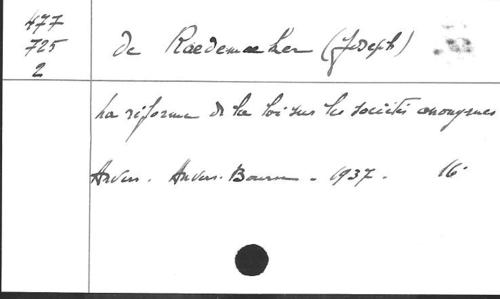 477
725
2
de Raedemaeker (Joseph)
La réforme de la loi sur les sociétés anonymes
Anvers. Anvers-Bourse. 1937. 16°